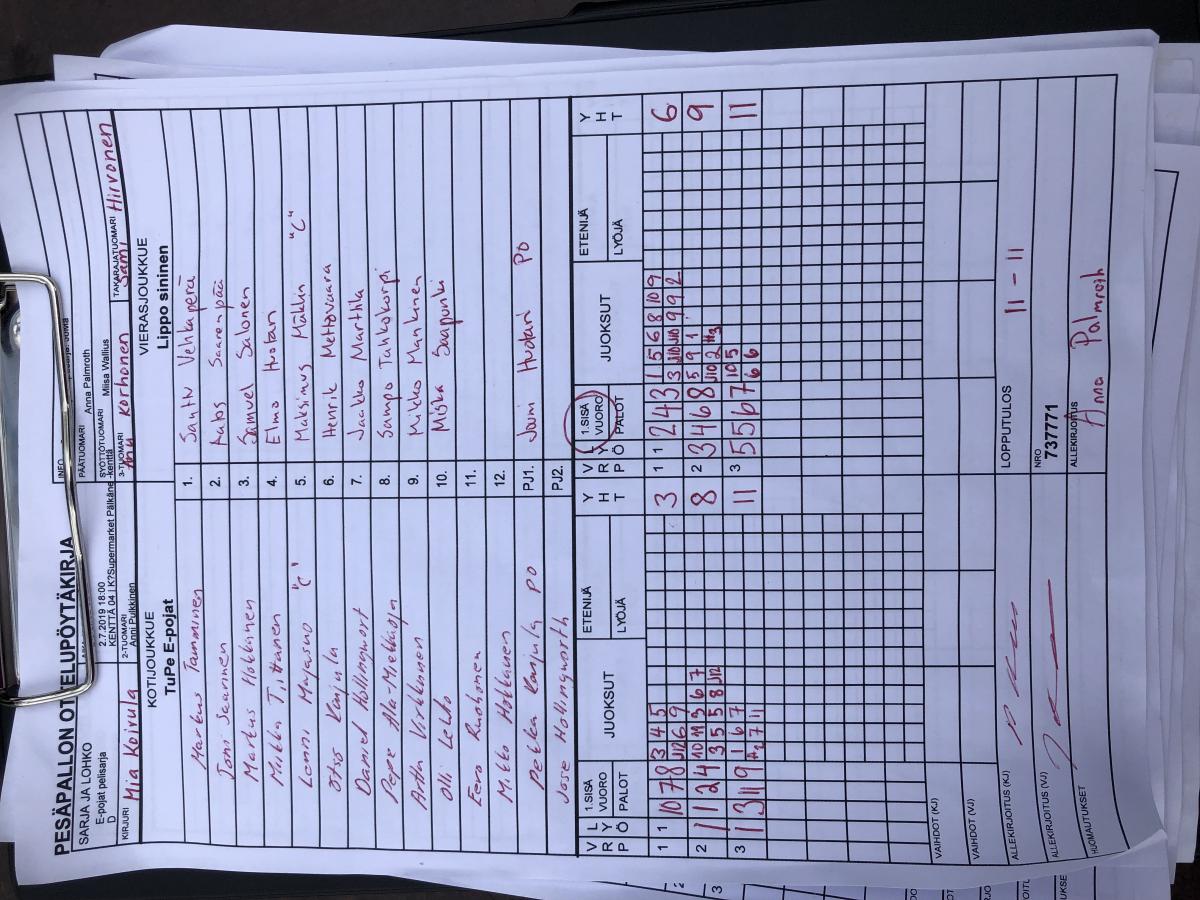 PESÄPALLON OTTELUPÖYTÄKIRJA
SARJA JA LOHKO
E-pojat pelisarja
D
2.7.2019 18:00
KENTTÄ 04 | K?Supermarket Pälkäne -kenttä
INFO
PÄÄTUOMARI
Anna Palmroth
SYÖTTÖTUOMARI
Miisa Wallius
KIRJURI
Mia Koivula
2-TUOMARI
Anni Pulkkinen
3-TUOMARI
Anu Korhonen
TAKARAJATUOMARI
Sami Hirvonen
KOTIJOUKKUE
TuPe E-pojat
VIERASJOUKKUE
Lippo sininen
Markus Tamminen 1. Santtu Vehkaperä
Joni Saarinen 2. Aatos Saarenpää
Markus Hokkanen 3. Samuel Salonen
Miikka Tiittanen 4. Elmo Huotari
Lenni Majasuo "C" 5. Maksimus Mäklin "C"
Otso Kanjula 6. Henrik Mettovaara
Daniel Hollingwort 7. Jaakko Marttila
Pepe Ala-Miekkaoja 8. Sampo Tahkokorpi
Arttu Virkkunen 9. Mikko Manninen
Olli Lehto 10. Miska Saapunki
Eero Ruohonen 11.
Mikko Hokkanen 12.
Pekka Kanjula PO PJ1. Jouni Huotari PO
Josse Hollingworth PJ2.
V R P L Y Ö 1.SISÄ VUORO PALOT JUOKSUT ETENIJÄ LYÖJÄ Y H T V R P L Y Ö 1.SISÄ VUORO PALOT JUOKSUT ETENIJÄ LYÖJÄ Y H T
1 1 10 7 8 3 4 5 3 1 1 2 4 3 1 5 6 8 10 9 6
J12 6 9 3 J10 J10 9 9 2
2 1 1 2 4 10 11 3 6 7 8 2 3 4 6 8 5 9 1 9
3 5 5 8 J12 J10 2 H3
3 1 3 11 9 1 6 7 11 3 5 5 6 7 10 5 11
7 11 6 6
VAIHDOT (KJ)
VAIHDOT (VJ)
ALLEKIRJOITUS (KJ)
LOPPUTULOS
11 - 11
ALLEKIRJOITUS (VJ)
NRO
737771
HUOMAUTUKSET
ALLEKIRJOITUS
Anna Palmroth